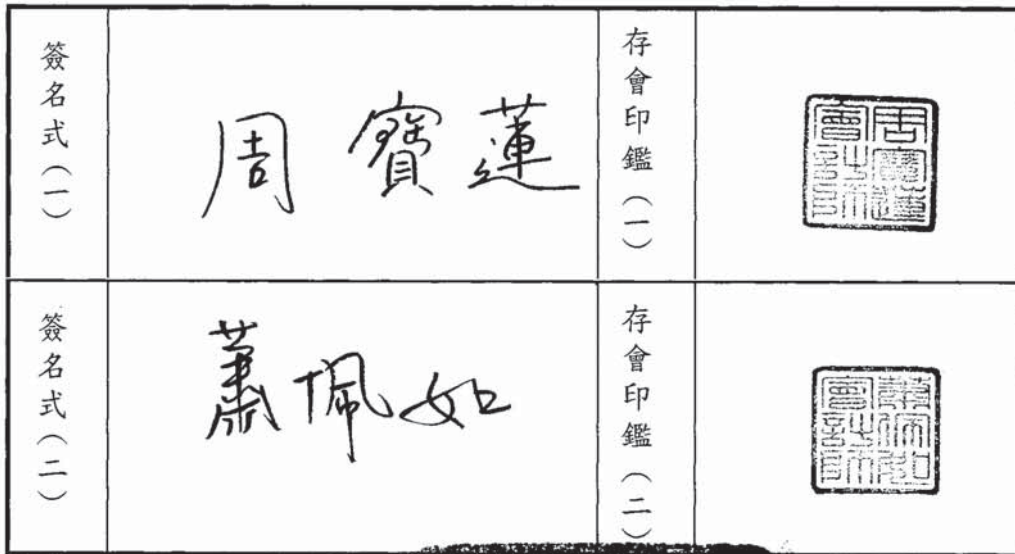 簽名式(一)
周寶蓮
存會印鑑(一)
周寶蓮會計師
簽名式(二)
蕭佩如
存會印鑑(二)
蕭佩如會計師